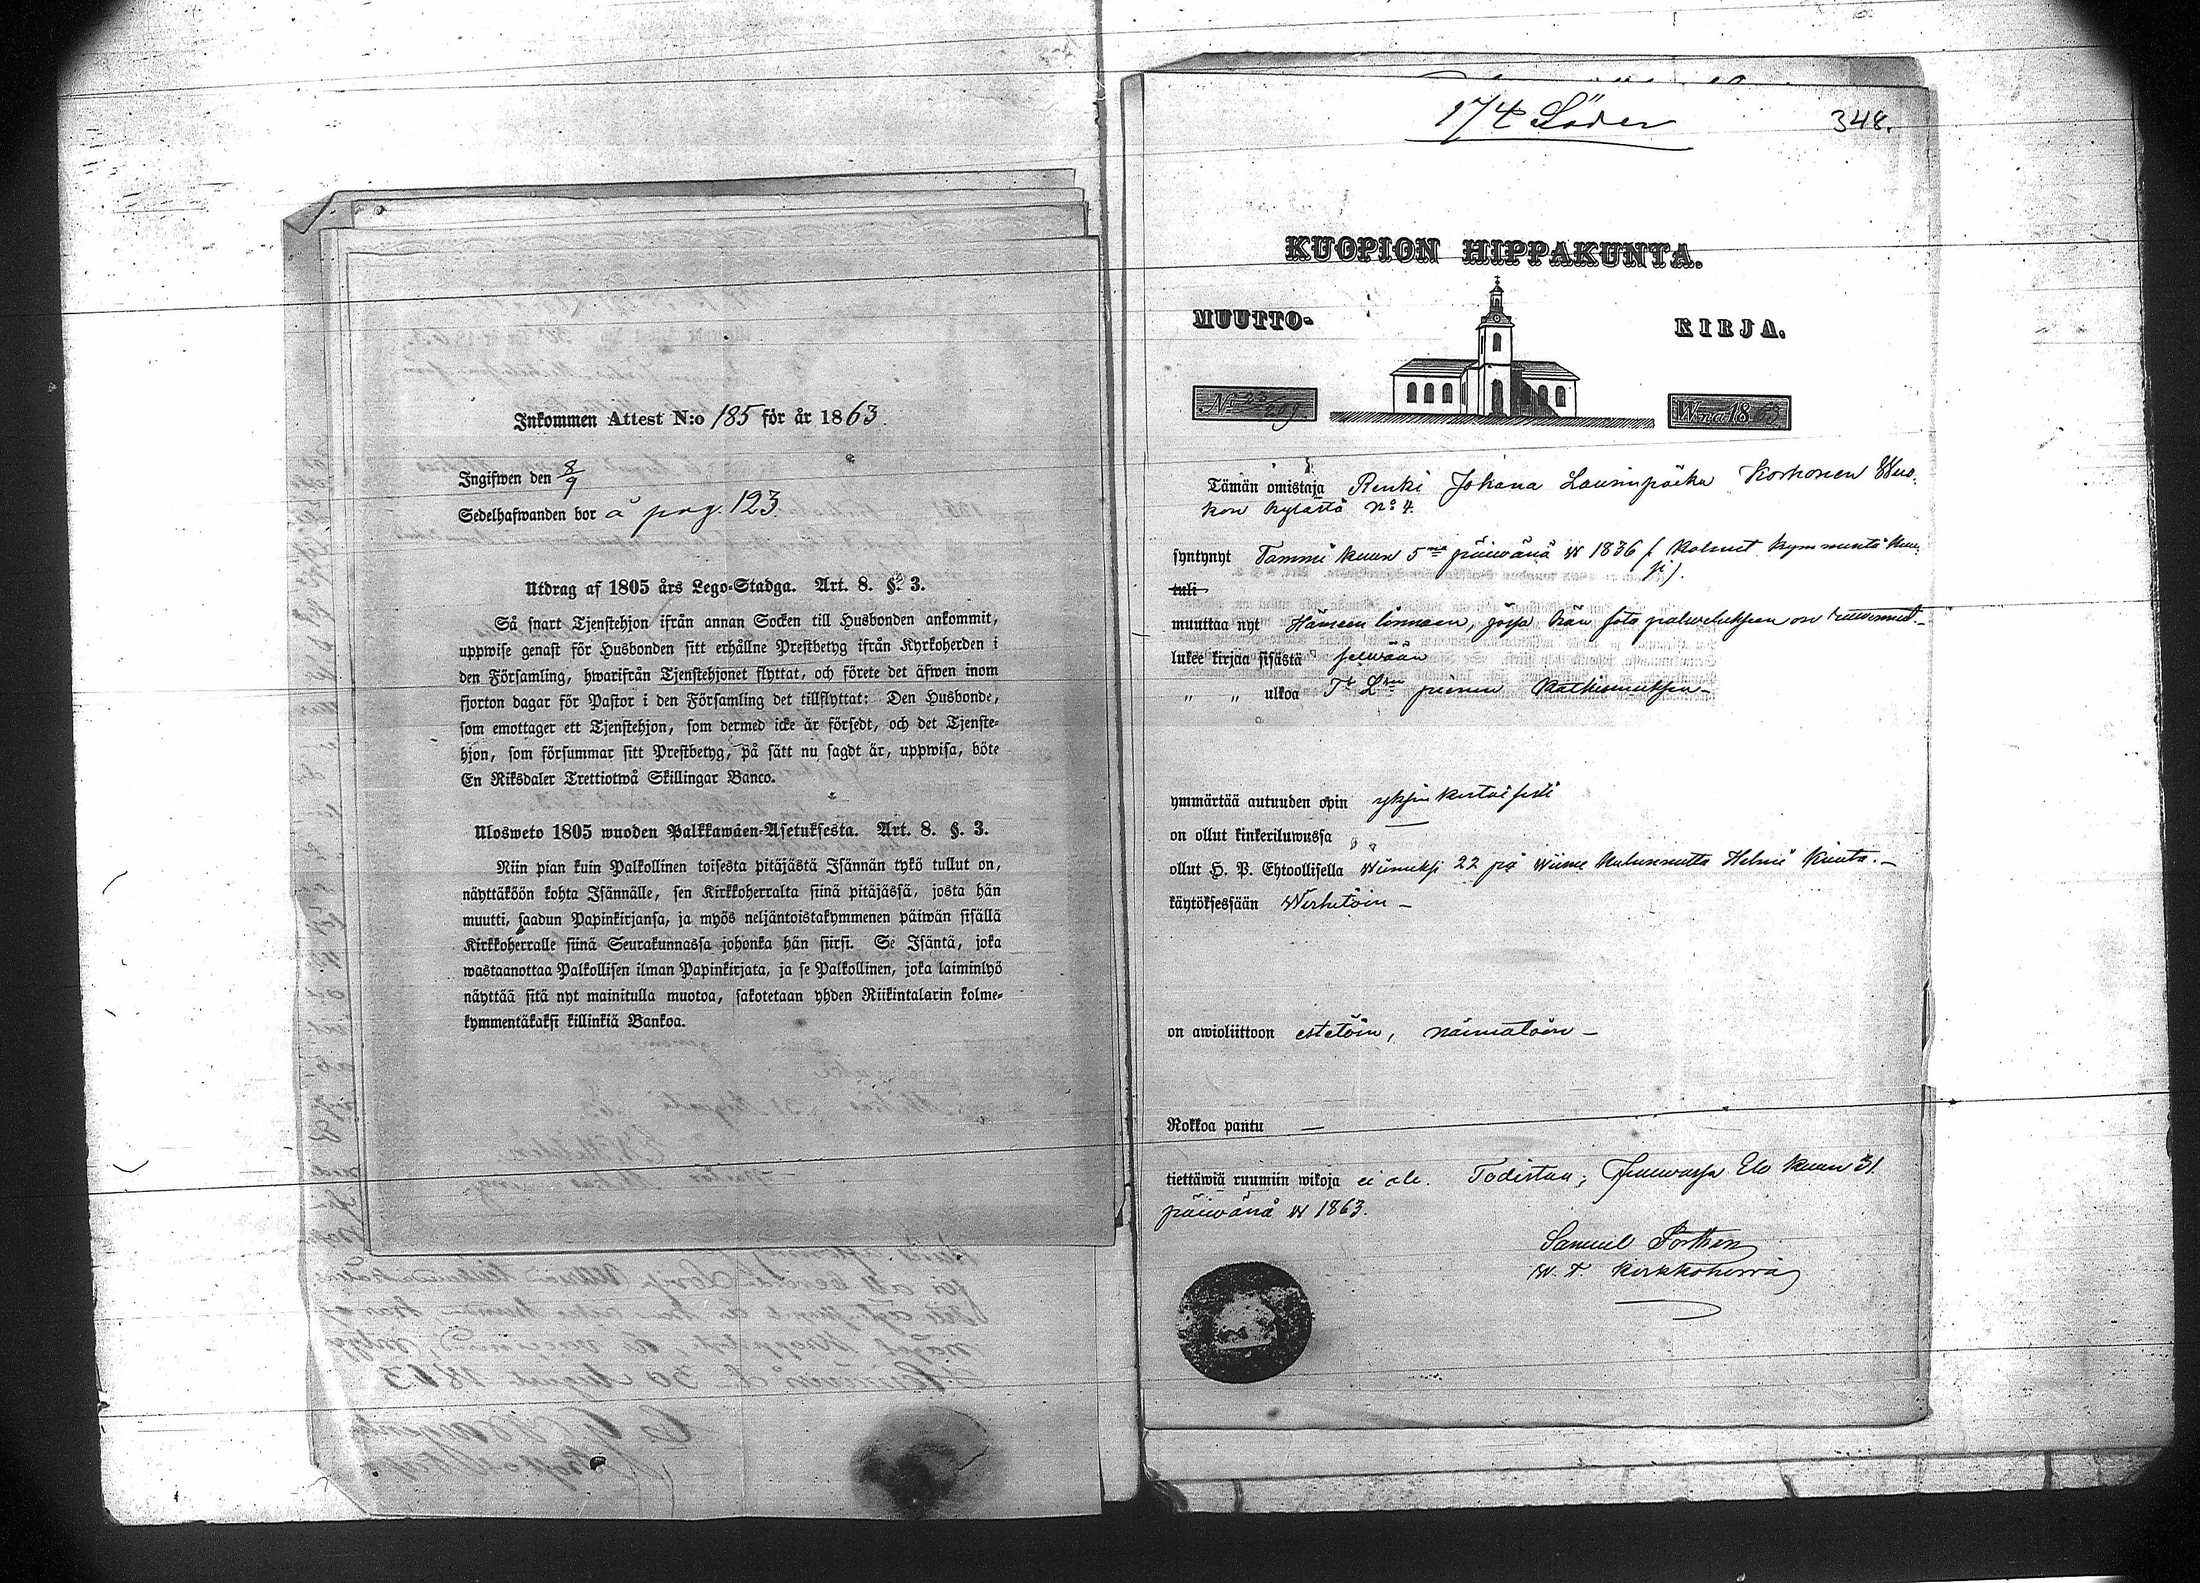 Inkommen Attest N:o 185 för år 1863.
Ingifwen den 8/9
Sedelhafwanden bor å pag. 123.
Utdrag af 1805 års Lego-Stadga. Art. 8. §. 3.
Så snart Tjenstehjon ifrån annan Socken till Husbonden ankommit,
uppwise genast för Husbonden sitt erhållne Prestbetyg ifrån Kyrkoherden i
den Församling, hwarifrån Tjenstehjonet flyttat, och förete det äfwen inom
fjorton dagar för Pastor i den Församling det tillflyttat: Den Husbonde,
som emottager ett Tjenstehjon, som dermed icke är försedt, och det Tjenste-
hjon, som försummar sitt Prestbetyg, på sätt nu sagdt är, uppwisa, böte
En Riksdaler Trettiotwå Skillingar Banco.
Ulosweto 1805 wuoden Palkkawäen-Asetuksesta. Art. 8. §. 3.
Niin pian kuin Palkollinen toisesta pitäjästä Isännän tykö tullut on,
näyttäköön kohta Isännälle, sen Kirkkoherralta siinä pitäjässä, josta hän
muutti, saadun Papinkirjansa, ja myös neljäntoistakymmenen päiwän sisällä
Kirkkoherralle siinä Seurakunnassa johonka hän siirsi. Se Isäntä, joka
wastaanottaa Palkollisen ilman Papinkirjata, ja se Palkollinen, joka laiminlyö
näyttää sitä nyt mainitulla muotoa, sakotetaan yhden Riikintalarin kolme-
kymmentäkaksi killinkiä Bankoa.
174 Söder
348.
KUOPION HIPPAKUNTA.
MUUTTO- KIRJA.
N:o W:na 1863
Tämän omistaja Renki Johana Laurinpoika Korhonen
kon kylästä No 4.
syntynyt Tammi kuun 5nä päiwänä w 1836 / Kolmet kymmentä kuu-
si).
tuli
muuttaa nyt Hämeen linnaan, josa hän sota palwelukseen on ruwennut.-
lukee kirjaa sisästä selwään
„ „ ulkoa pienen Katkismuksen -
ymmärtää autuuden opin yksin kertaisesti
on ollut kinkeriluwussa
ollut H. P. Ehtoollisella wiimeksi 22 pä wiime kulunnutta Helmi kuuta. -
käytöksessään Wirhetöin -
on awioliittoon estetöin, naimatoin -
Rokkoa pantu —
tiettäwiä ruumiin wikoja ei ole. Todistaa; Elo kuun 31
päiwänä w 1863.
Samuel
W. T. Kirkkoherra